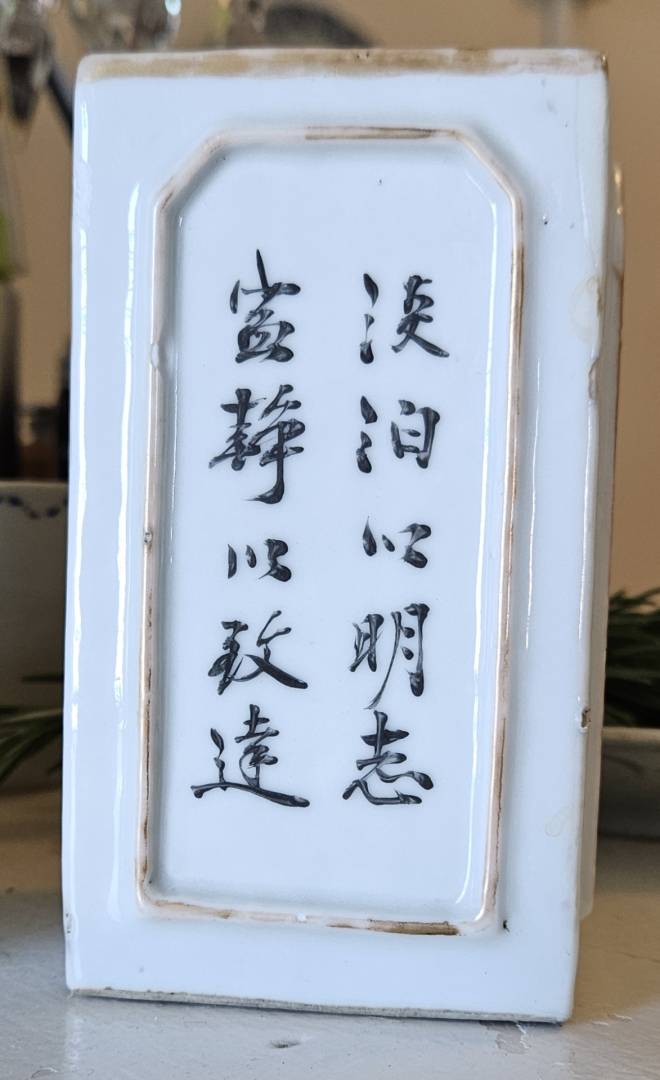 淡泊以明志
寍靜以致達